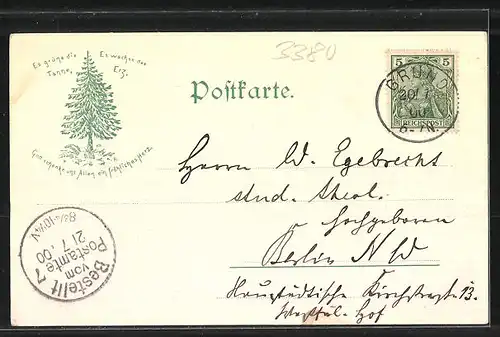 3380
Es grüne die Es wachse das
Tanne, Erz,
Gott schenke uns Allen ein fröhliches Herz.
Postkarte.
5 5
REICHSPOST
GRUND
20/7
00
6-7N.
Herrn W. Egebrecht
stud. theol.
Hochgeboren
Berlin N W
Kirchstraße 13.
Westfäl. Hof
Bestellt
vom
Postamte 7
21/7.00
8¾-10¼V